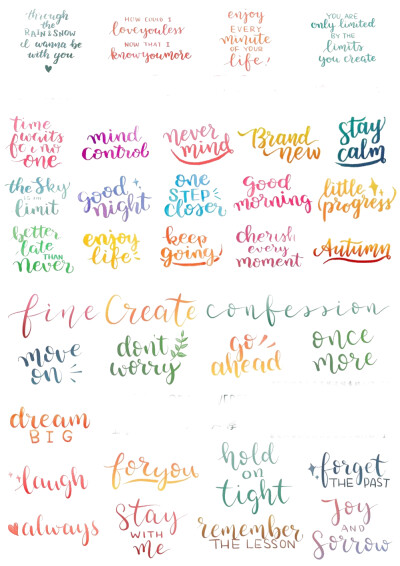 through
the
RAIN & SNOW
i wanna be
with you
HOW COULD I
love you less
NOW THAT I
know you more
enjoy
EVERY
minute
OF YOUR
life!
YOU ARE
only limited
BY THE
limits
you create
time
waits
for no
one
mind
control
never
mind
Brand
new
stay
calm
the Sky
is the
limit
good
night
one
STEP
closer
good
morning
little
(progress)
better
late
THAN
never
enjoy
life
keep
going!
cherish
every
moment
Autumn
fine Create confession
move
on
don't
worry
go
ahead
once
more
dream
BIG
laugh
for you
hold
on
tight
forget
THE PAST
always
Stay
WITH
me
remember
THE LESSON
Joy
AND
Sorrow